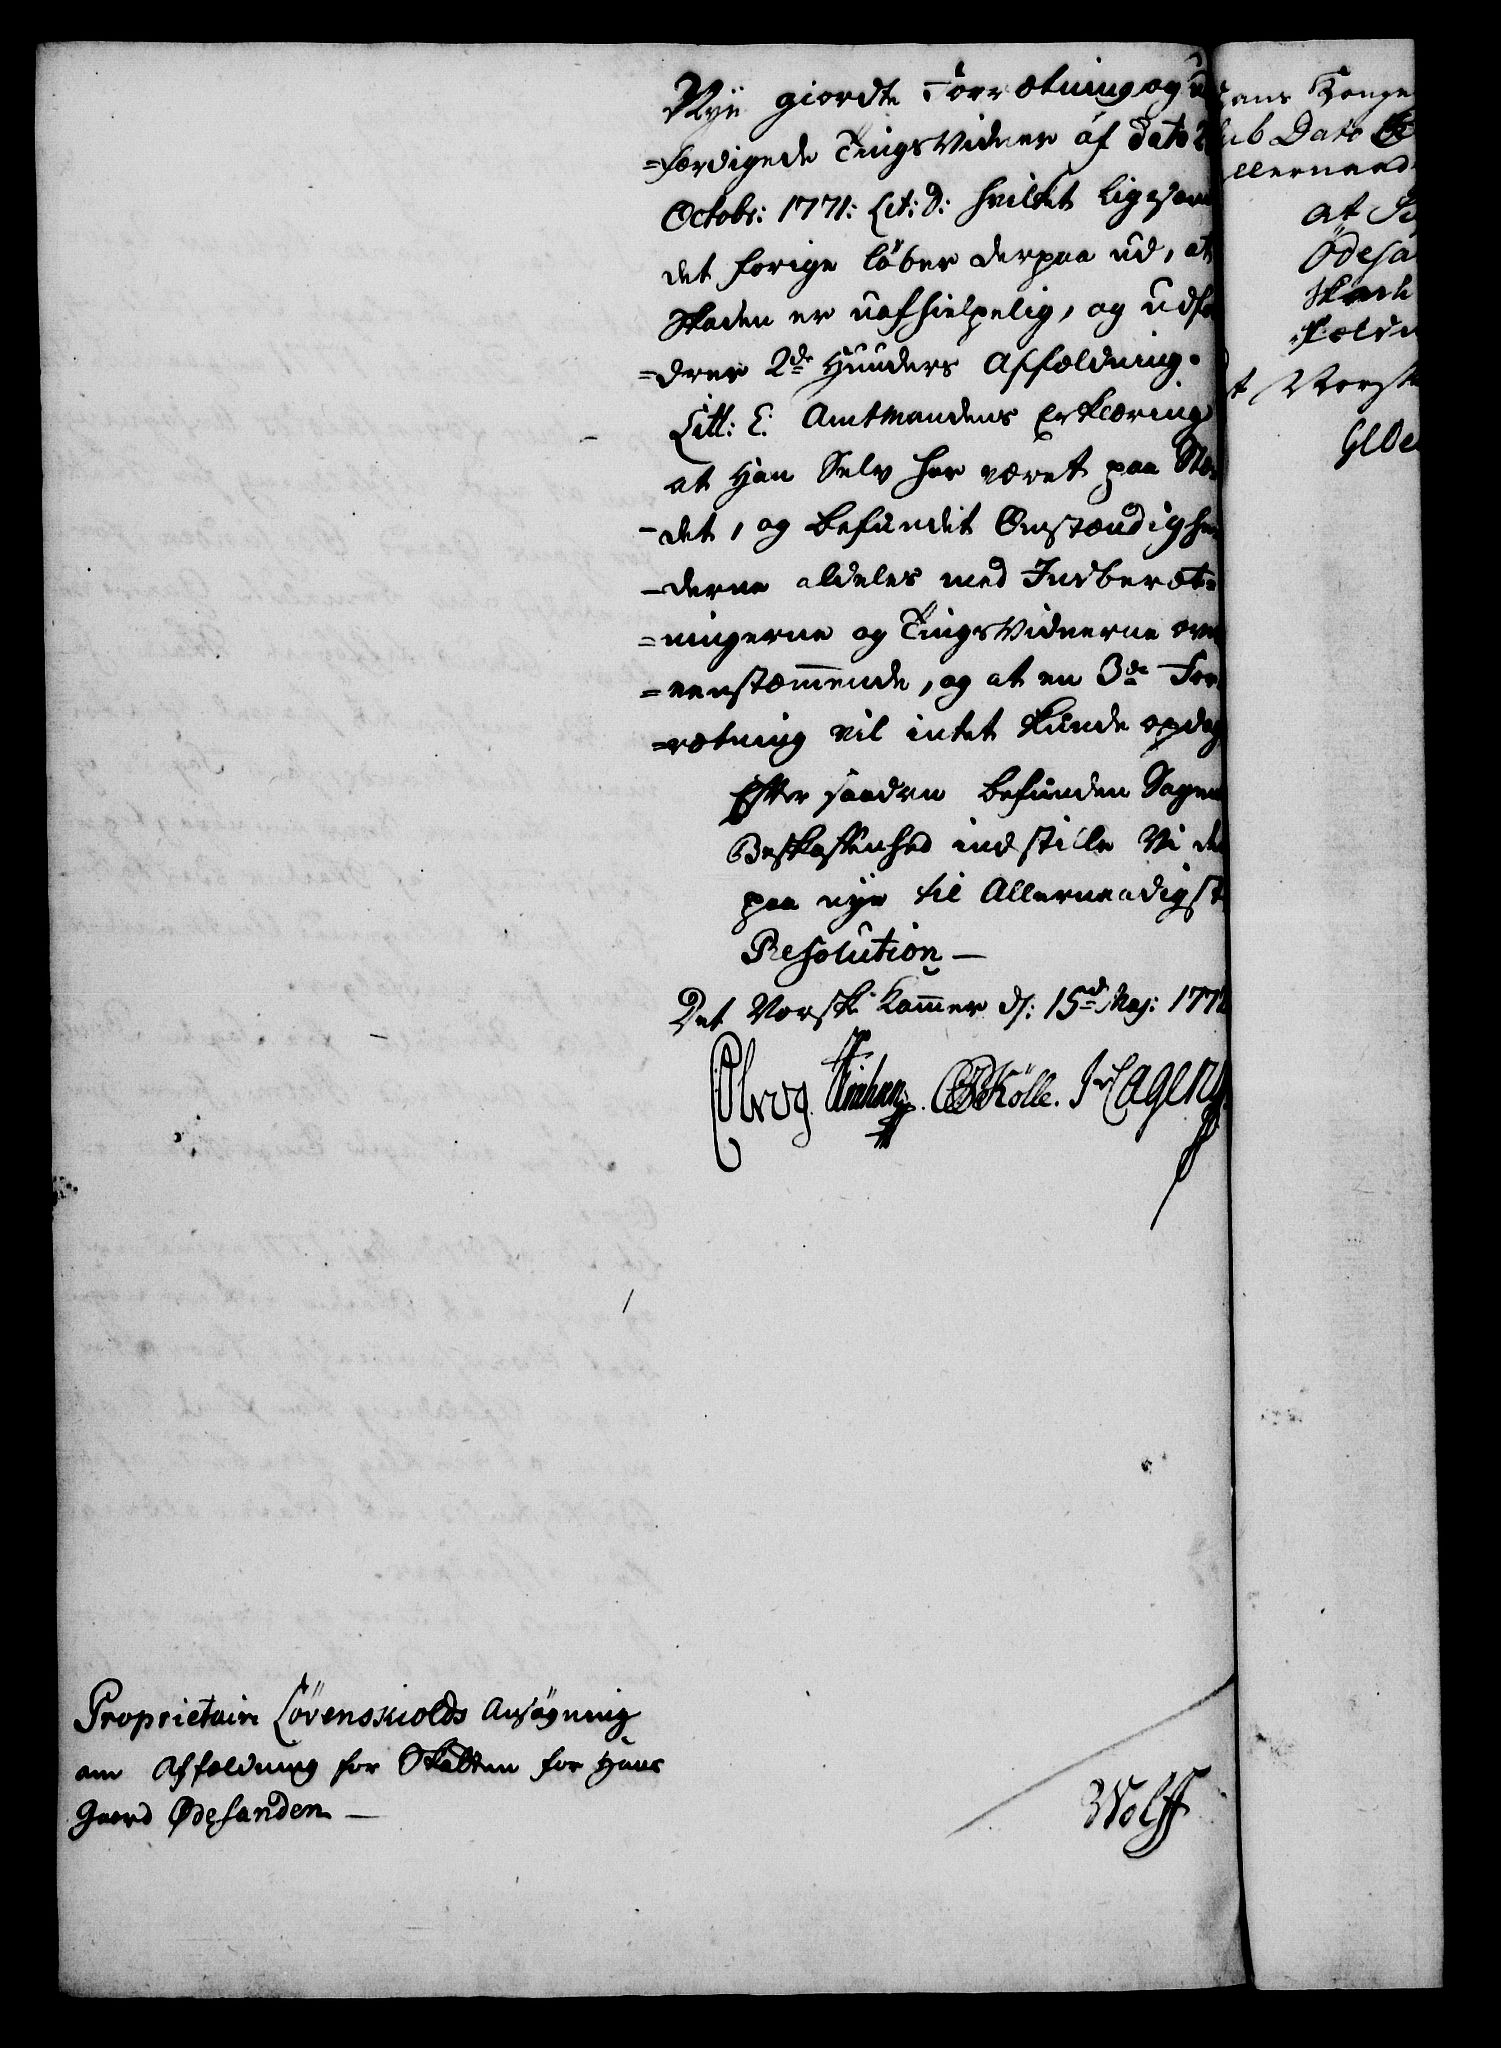 Nye giordte Forrætning og u
=færdigede Tings Vidner af dato 2
Octobr: 1771: Lit: D: hvilket ligesom
det forige løber derpaa ud, at
Skaden er uafhielpelig, og udfo
=drer 2de Hunders Affældning.
Litt: E: Amtmandens Erklæring
at Han Selv har været paa Stæ
-det, og befundet Omstændighe
-derne aldeles med Indberæt=
=ningerne og Tings Vidnerne over
=eenstæmmende, og at en 3de For
=rætning vil intet kunde opdag
Efter saaden befunden Sagens
Beskaffenhed indstille Vi de
paa nye til Allernaadigst
Resolution —
Det Norske Kammer d: 15de Maj: 1772
Kølle.
Proprietaire Løvenskiolds Ansøgning
om Affældning for Skatten for Hans
Gaard Ødesanden —
Wolff
Hans Konge
sub Dato
llernaad
at
Ødesa
fældn
t Norsk